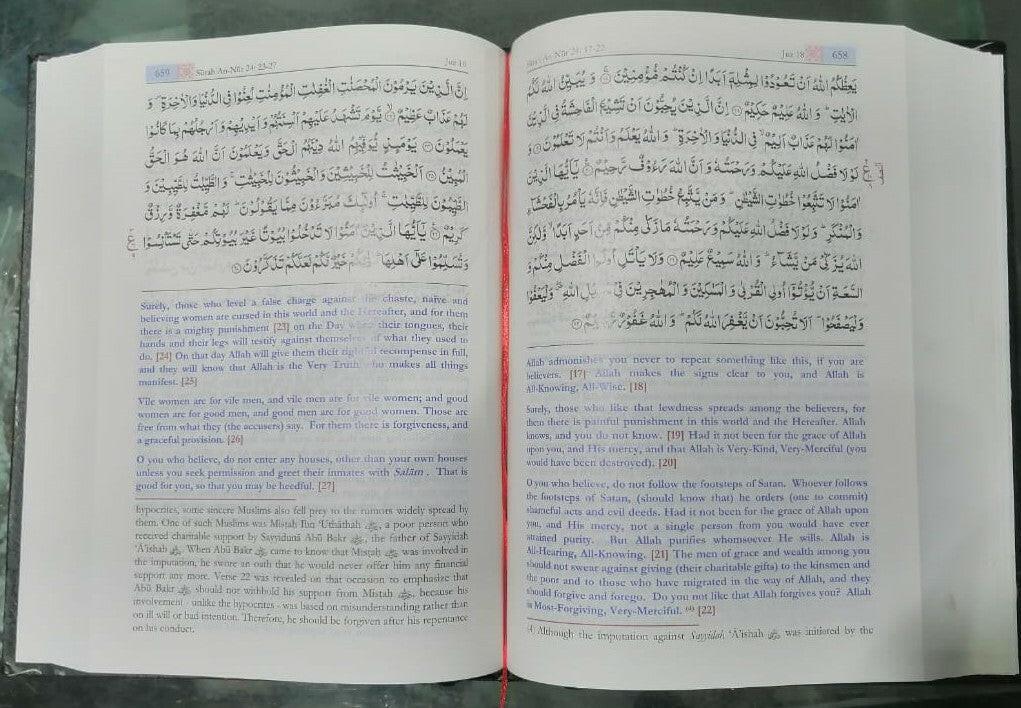 Sūrah An-Nūr 24: 17-22 Juz 18 658
يَعِظُكُمُ اللّٰهُ اَنْ تَعُوْدُوْا لِمِثْلِهٖٓ اَبَدًا اِنْ كُنْتُمْ مُّؤْمِنِيْنَ ۝۱۷ وَ يُبَيِّنُ اللّٰهُ لَكُمُ
الْاٰيٰتِ ؕ وَ اللّٰهُ عَلِيْمٌ حَكِيْمٌ ۝۱۸ اِنَّ الَّذِيْنَ يُحِبُّوْنَ اَنْ تَشِيْعَ الْفَاحِشَةُ فِي الَّذِيْنَ
اٰمَنُوْا لَهُمْ عَذَابٌ اَلِيْمٌ ۙ فِي الدُّنْيَا وَ الْاٰخِرَةِ ؕ وَ اللّٰهُ يَعْلَمُ وَ اَنْتُمْ لَا تَعْلَمُوْنَ ۝۱۹ وَ
لَوْ لَا فَضْلُ اللّٰهِ عَلَيْكُمْ وَ رَحْمَتُهٗ وَ اَنَّ اللّٰهَ رَءُوْفٌ رَّحِيْمٌ ۝۲۰ يٰۤاَيُّهَا الَّذِيْنَ
اٰمَنُوْا لَا تَتَّبِعُوْا خُطُوٰتِ الشَّيْطٰنِ ؕ وَ مَنْ يَّتَّبِعْ خُطُوٰتِ الشَّيْطٰنِ فَاِنَّهٗ يَاْمُرُ بِالْفَحْشَآءِ
وَ الْمُنْكَرِ ؕ وَ لَوْ لَا فَضْلُ اللّٰهِ عَلَيْكُمْ وَ رَحْمَتُهٗ مَا زَكٰى مِنْكُمْ مِّنْ اَحَدٍ اَبَدًا ۙ وَّ لٰكِنَّ
اللّٰهَ يُزَكِّيْ مَنْ يَّشَآءُ ؕ وَ اللّٰهُ سَمِيْعٌ عَلِيْمٌ ۝۲۱ وَ لَا يَاْتَلِ اُولُوا الْفَضْلِ مِنْكُمْ وَ
السَّعَةِ اَنْ يُّؤْتُوْۤا اُولِي الْقُرْبٰى وَ الْمَسٰكِيْنَ وَ الْمُهٰجِرِيْنَ فِيْ سَبِيْلِ اللّٰهِ ۖ وَ لْيَعْفُوْا
وَ لْيَصْفَحُوْا ؕ اَلَا تُحِبُّوْنَ اَنْ يَّغْفِرَ اللّٰهُ لَكُمْ ؕ وَ اللّٰهُ غَفُوْرٌ رَّحِيْمٌ ۝۲۲
Allah admonishes you never to repeat something like this, if you are
believers. [17] Allah makes the signs clear to you, and Allah is
All-Knowing, All-Wise. [18]
Surely, those who like that lewdness spreads among the believers, for
them there is painful punishment in this world and the Hereafter. Allah
knows, and you do not know. [19] Had it not been for the grace of Allah
upon you, and His mercy, and that Allah is Very-Kind, Very-Merciful (you
would have been destroyed). [20]
O you who believe, do not follow the footsteps of Satan. Whoever follows
the footsteps of Satan, (should know that) he orders (one to commit)
shameful acts and evil deeds. Had it not been for the grace of Allah upon
you, and His mercy, not a single person from you would have ever
attained purity. But Allah purifies whomsoever He wills. Allah is
All-Hearing, All-Knowing. [21] The men of grace and wealth among you
should not swear against giving (their charitable gifts) to the kinsmen and
the poor and to those who have migrated in the way of Allah, and they
should forgive and forego. Do you not like that Allah forgives you? Allah
is Most-Forgiving, Very-Merciful. (4) [22]
(4) Although the imputation against Sayyidah ‘Ā’ishah was initiated by the
659 Sūrah An-Nūr 24: 23-27 Juz 18
اِنَّ الَّذِيْنَ يَرْمُوْنَ الْمُحْصَنٰتِ الْغٰفِلٰتِ الْمُؤْمِنٰتِ لُعِنُوْا فِي الدُّنْيَا وَ الْاٰخِرَةِ ۪ وَ
لَهُمْ عَذَابٌ عَظِيْمٌ ۝۲۳ يَّوْمَ تَشْهَدُ عَلَيْهِمْ اَلْسِنَتُهُمْ وَ اَيْدِيْهِمْ وَ اَرْجُلُهُمْ بِمَا كَانُوْا
يَعْمَلُوْنَ ۝۲۴ يَوْمَئِذٍ يُّوَفِّيْهِمُ اللّٰهُ دِيْنَهُمُ الْحَقَّ وَ يَعْلَمُوْنَ اَنَّ اللّٰهَ هُوَ الْحَقُّ
الْمُبِيْنُ ۝۲۵ اَلْخَبِيْثٰتُ لِلْخَبِيْثِيْنَ وَ الْخَبِيْثُوْنَ لِلْخَبِيْثٰتِ ۚ وَ الطَّيِّبٰتُ لِلطَّيِّبِيْنَ وَ
الطَّيِّبُوْنَ لِلطَّيِّبٰتِ ۚ اُولٰٓئِكَ مُبَرَّءُوْنَ مِمَّا يَقُوْلُوْنَ ؕ لَهُمْ مَّغْفِرَةٌ وَّ رِزْقٌ
كَرِيْمٌ ۝۲۶ يٰۤاَيُّهَا الَّذِيْنَ اٰمَنُوْا لَا تَدْخُلُوْا بُيُوْتًا غَيْرَ بُيُوْتِكُمْ حَتّٰى تَسْتَاْنِسُوْا
وَ تُسَلِّمُوْا عَلٰۤى اَهْلِهَا ؕ ذٰلِكُمْ خَيْرٌ لَّكُمْ لَعَلَّكُمْ تَذَكَّرُوْنَ ۝۲۷
Surely, those who level a false charge against the chaste, naïve and
believing women are cursed in this world and the Hereafter, and for them
there is a mighty punishment [23] on the Day when their tongues, their
hands and their legs will testify against themselves of what they used to
do. [24] On that day Allah will give them their rightful recompense in full,
and they will know that Allah is the Very Truth who makes all things
manifest. [25]
Vile women are for vile men, and vile men are for vile women; and good
women are for good men, and good men are for good women. Those are
free from what they (the accusers) say. For them there is forgiveness, and
a graceful provision. [26]
O you who believe, do not enter any houses, other than your own houses
unless you seek permission and greet their inmates with Salām . That is
good for you, so that you may be heedful. [27]
hypocrites, some sincere Muslims also fell prey to the rumors widely spread by
them. One of such Muslims was Mistah Ibn ‘Uthāthah , a poor person who
received charitable support by Sayyidunā Abū Bakr , the father of Sayyidah
‘Ā’ishah . When Abū Bakr came to know that Mistah was involved in
the imputation, he swore an oath that he would never offer him any financial
support any more. Verse 22 was revealed on that occasion to emphasize that
Abū Bakr should not withhold his support from Mistah , because his
involvement - unlike the hypocrites - was based on misunderstanding rather than
on ill will or bad intention. Therefore, he should be forgiven after his repentance
on his conduct.